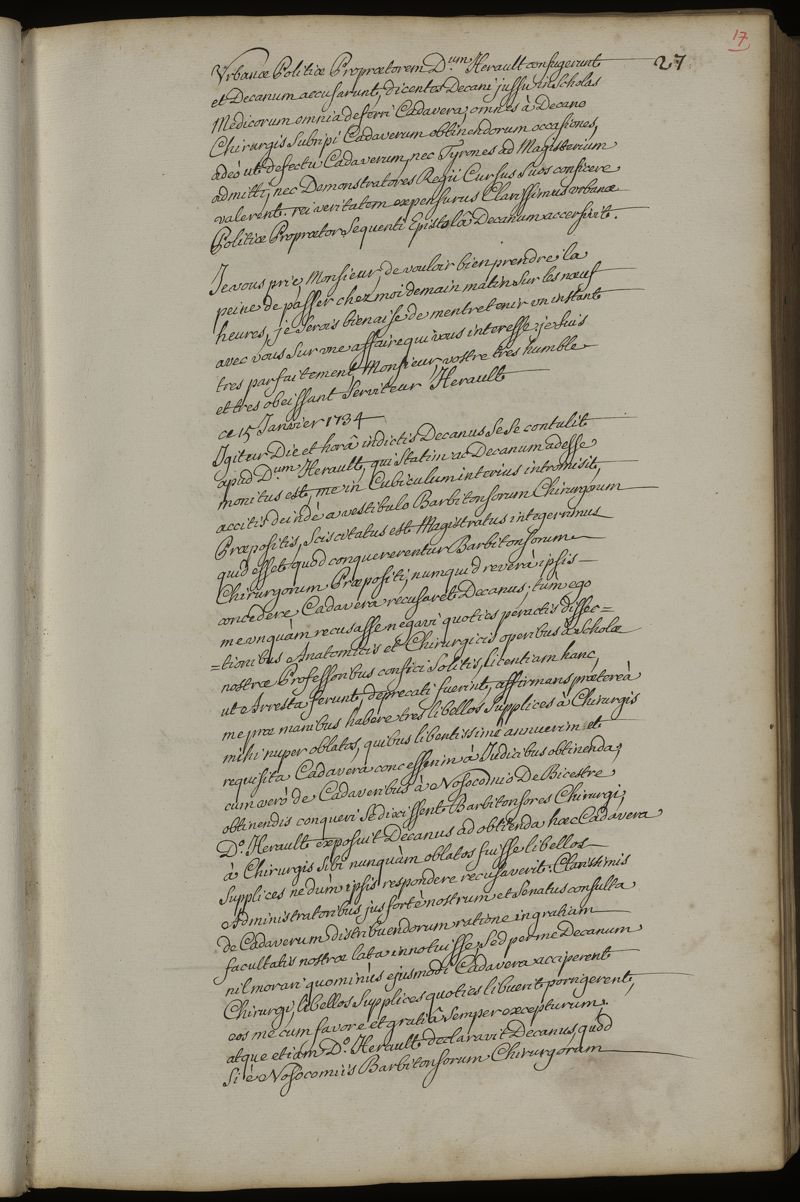 17
27
Urbanæ Politiæ Proprætorem D.um Herault confugerunt
et Decanum accusarunt, dicentes Decani jussu in Scholas
Medicorum omnia deferri Cadavera; omnes à Decano
Chirurgis Subripi Cadaverum obtinendorum occasiones,
adeò ut defectu Cadaverum, nec Tyrones ad Magisterium
admitti, nec Demonstratores Regii Cursus Suos conficere
valerent. rei veritatem expensurus Clarissimus urbanæ
Politiæ Proprætor Sequenti Epistolâ Decanum accersivit.
Je vous prie, Monsieur, de vouloir bien prendre la
peine de passer chez moi demain matin Sur les nœuf
heures, je Serois bien aise de m'entretenir un instant
avec vous Sur une affaire qui vous interesse, je Suis
tres parfaitement, Monsieur, vostre tres humble
et tres obeissant Serviteur Herault
ce 15 Janvier 1734
Igitur Die et horâ indictis Decanus Se Se contulit
apud D.um Herault, qui Statim ac Decanum adesse
monitus est, me in Cubiculum interius intromisit,
accitis deindè a vestibulo Barbitonsorum Chirurgorum
Præpositis, Sciscitatus est Magistratus integerrimus
quid esset quod conquererentur Barbitonsorum
Chirurgorum Præpositi, numquid reverà ipsis
concedere Cadavera recusaret Decanus; tùm ego
me unquàm recusasse negavi quoties peractis dissec=
=tionibus Anatomicis et Chirurgicis operibus à Scholæ
nostræ Professoribus confici Solitis, licentiam hanc,
ut Arresta ferunt, deprecati fuerint, affirmans prætereà
me præ manibus habere tres libellos Supplices à Chirurgis
mihi nuper oblatos, quibus libentissimè annuerim et
requisita Cadavera concesserim à Judicibus obtinenda;
cum verò de Cadaveribus à Nosocomio De Bicestre
obtinendis conqueri Se dixissent Barbitonsores Chirurgi;
D.o Herault exposuit Decanus ad obtienda hæc Cadavera
à Chirurgis Sibi nunquàm oblatos fuisse libellos
Supplices nedùm ipsis respondere recusaverit. Clarissimis
Administratoribus jus fortè nostrum et Senatus consulta
de Cadaverum distribuendorum ratione in gratiam
facultatis nostræ lata innotuisse, Sed per me Decanum
nil morari quominùs ejusmodi Cadavera acciperent
Chirurgi, libellos Supplices quoties libuerit porrigerent,
eos me cum favore et gratiâ Semper excepturum.
atque etiam D.o Herault declaravit Decanus, quòd
Si è Nosocomiis Barbitonsorum Chirurgorum